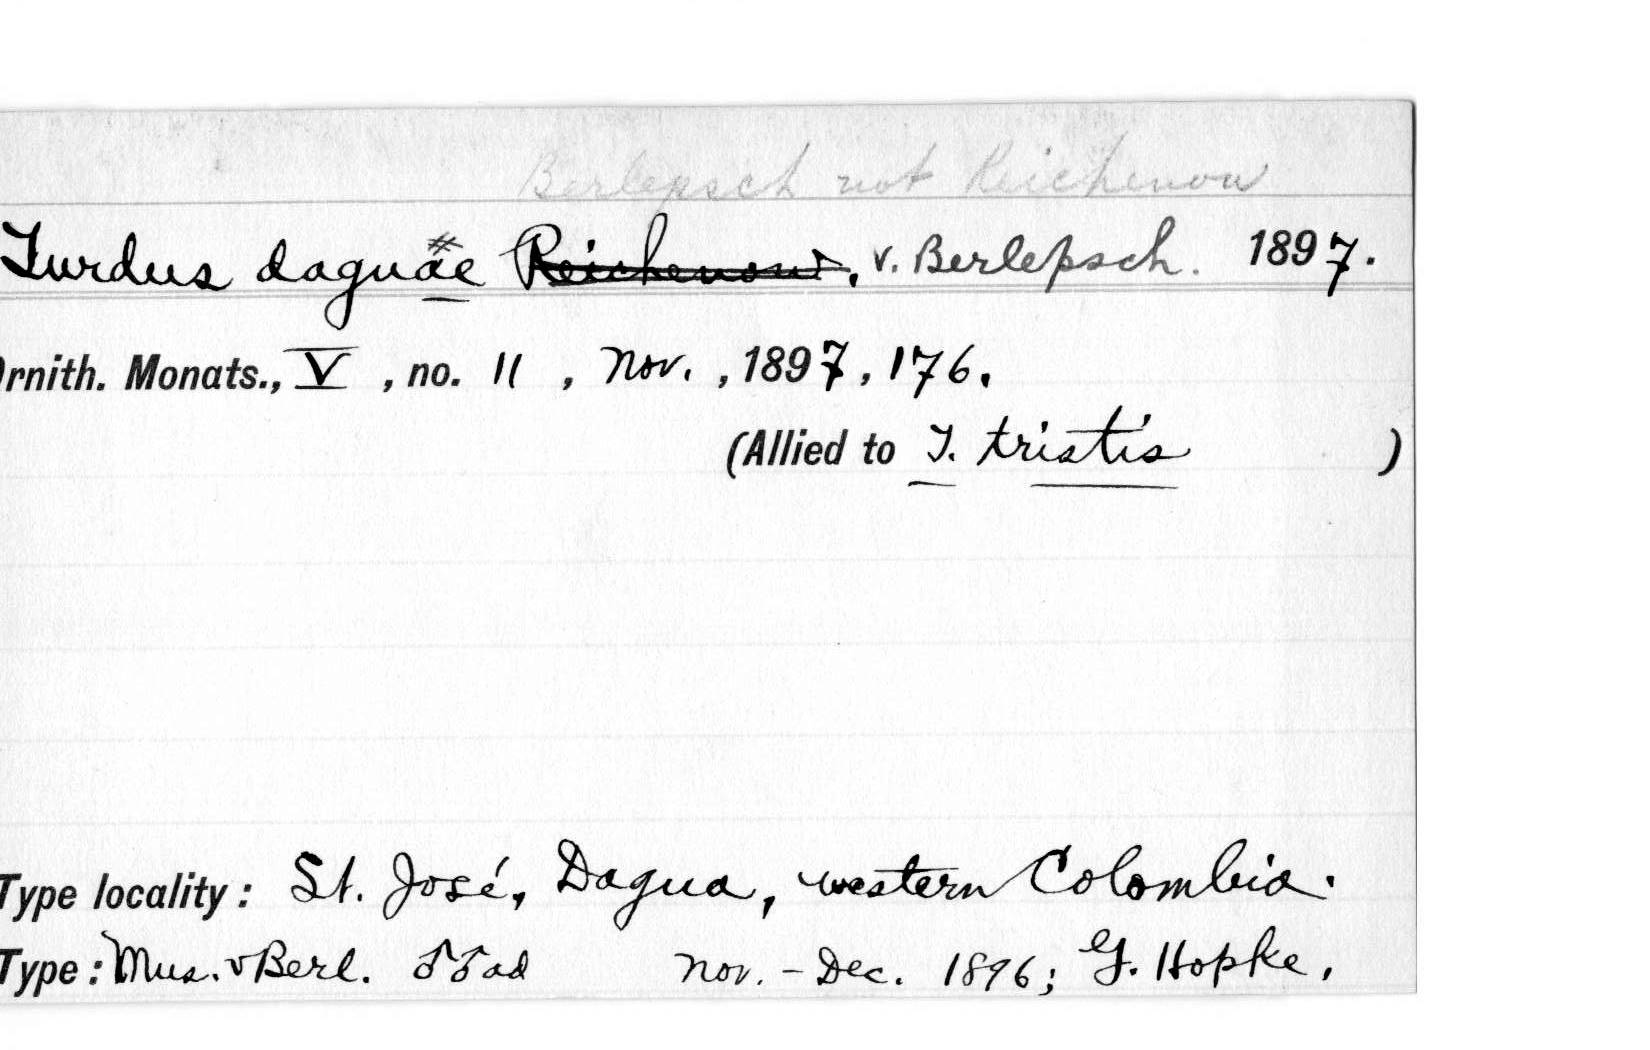 Berlepsch not Reichenow
Turdus daguae Reichenow, v. Berlepsch. 1897.
Ornith. Monats., V, no. 11, Nov., 1897, 176.
(Allied to T. tristis )
Type locality: St. José, Dagua, western Colombia.
Type: Mus. v Berl. ♂♂ad Nov. - Dec. 1896; G. Hopke.